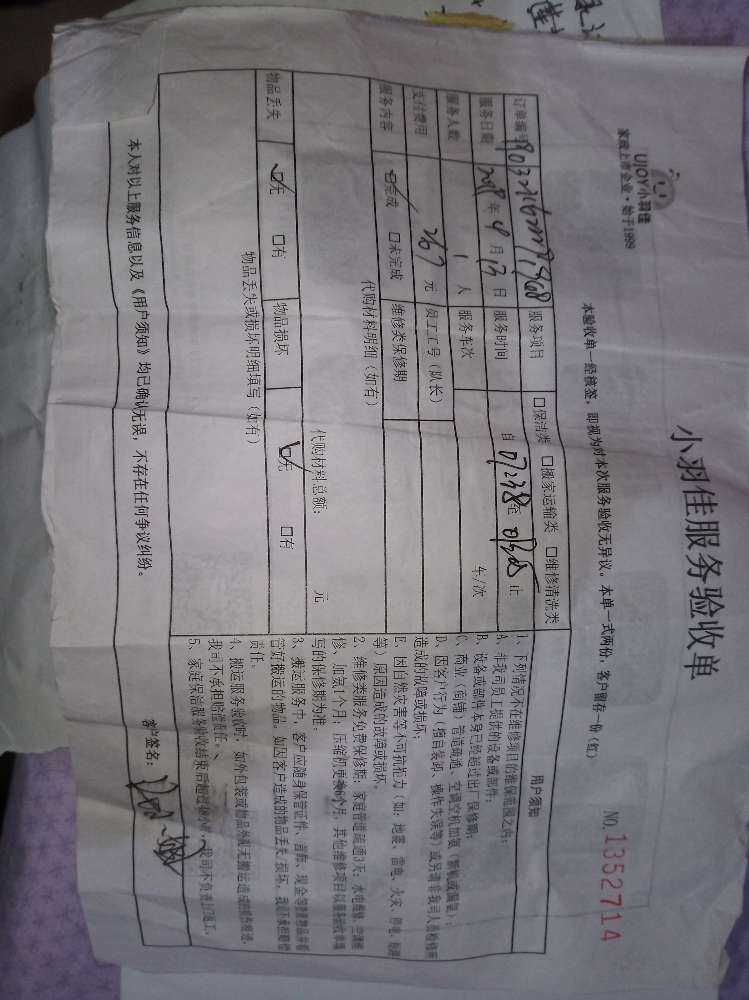 UJOY小羽佳
家政上市企业·始于1999
小羽佳服务验收单
NO. 1352714
本验收单一经核签，即视为对本次服务验收无异议。本单一式两份，客户留存一份（红）
订单编号
服务项目 □保洁类 □搬家运输类 □维修清洗类
服务日期 年 4 月 13 日 服务时间 自 至 止
服务人数 1 人 服务车次 车/次
支付费用 267 元 员工工号（队长）
服务内容 □完成 □未完成 维修类保修期
代购材料明细（如有）
代购材料总额： 元
物品丢失 □无 □有 物品损坏 □无 □有
物品丢失或损坏明细填写（如有）
用户须知
1、下列情况不在维修项目的维保范围之内：
A、非我司员工提供的设备或部件；
B、设备或部件本身已经超过出厂保修期；
C、商业（商铺）管道疏通、空调空机加氨（新机或漏氨）；
D、因客户行为（擅自装卸、操作失误等）或另请非我司人员检修所
造成的故障或损坏；
E、因自然灾害等不可抗拒力（如：地震、雷电、火灾、停电、
等）原因造成的故障或损坏。
2、维修类服务免费保修期：家庭管道疏通3天；水电维修、空调维
修、加氨1个月；压缩机更换6个月，其他维修项目以服务验收单填
写的保修期为准。
3、搬运服务中，客户应随身保管证件、首饰、现金等贵重物品并看
管好搬运的物品。如因客户造成的物品丢失/损坏，我司不承担赔偿
责任。
4、搬运服务验收时，如外包装或物品外观无搬运造成的损伤痕迹，
我司不承担赔偿责任。
5、家庭保洁服务验收结束后超过 小时，我司不负责上门返工。
本人对以上服务信息以及《用户须知》均已确认无误，不存在任何争议纠纷。
客户签名：